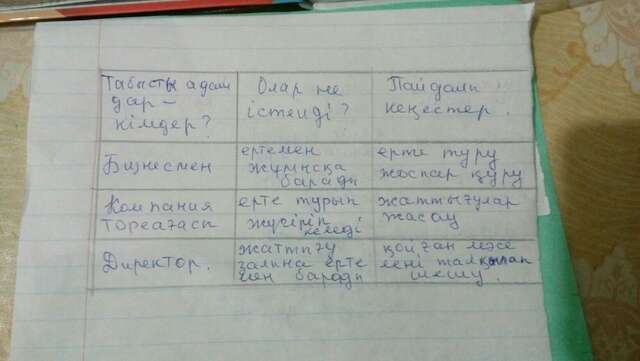 Табысты адам
дар –
кімдер?
Олар не
істейді?
Пайдалы
кеңестер.
Бизнесмен
ертемен
жұмысқа
барады
ерте тұру
жоспар құру
Компания
төрағасы
ерте тұрып
жүгіріп
келеді
жаттығулар
жасау
Директор.
жаттығу
залына ерте
мен барады
қойған мәсе
лені талқылап
шешу.